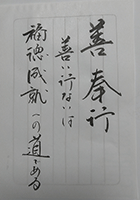 善奉行
善い行ないは
福徳成就への道である